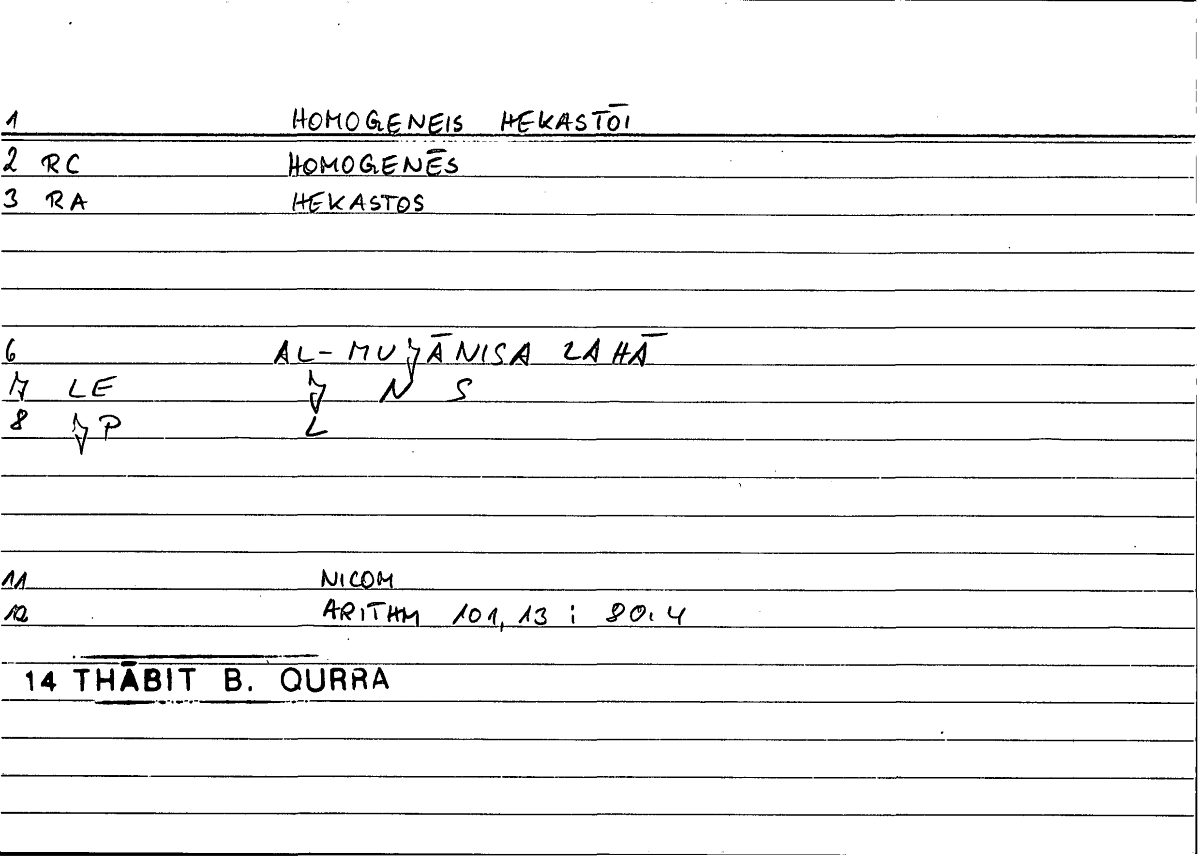 1 HOMOGENEIS HEKASTŌI
2 RC HOMOGENĒS
3 RA HEKASTOS
6 AL-MUǧĀNISA LAHĀ
7 LE ǧ N S
8 ǧP L
11 NICOM
12 ARITHM 101,13 ; 80.4
14 THĀBIT B. QURRA